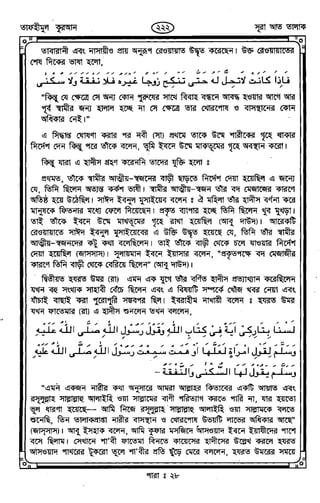 তাফহীমুল কুরআন
২২২
সূরা আত তালাক
তাবারানী এবং নাসায়ীও প্রায় অনুরূপ রেওয়ায়াত উদ্ধৃত করেছেন। উক্ত রেওয়ায়াতের
শেষ দিকের ভাষা হলোঃ
فاذا كانت لاتحل له حتى تنكح زوجا غيره فلا نفقة ولا سكنى
"কিন্তু যে ক্ষেত্রে সে অন্য কোন পুরুষের সাথে বিবাহ বন্ধনে আবদ্ধ হওয়ার আগে আর
পূর্ব স্বামীর জন্য হালাল হচ্ছে না সে ক্ষেত্রে তার খোরপোষ ও বাসস্থানের কোন
অধিকার নেই।"
এ সিদ্ধান্ত ঘোষণা করার পর নবী (সা) প্রথমে তাকে উম্মে শারীকের গৃহে থাকার
নির্দেশ দেন কিন্তু পরে তাঁকে বলেন, তুমি ইবনে উম্মে মাকতুমের গৃহে অবস্থান করো।
কিন্তু যারা এ হাদীস গ্রহণ করেননি তাদের যুক্তি হলোঃ
প্রথমত, তাঁকে স্বামীর আত্মীয়-স্বজনের বাড়ী ছাড়তে নির্দেশ দেয়া হয়েছিল এ জন্যে
যে, তিনি ছিলেন অত্যন্ত কর্কশ ভাষী। স্বামীর আত্মীয়-স্বজন তাঁর বদ মেজাজের কারণে
অতিষ্ঠ হয়ে উঠেছিল। সাঈদ ইবনুল মুসাইয়েব বলেনঃ ঐ মহিলা তাঁর হাদীস বর্ণনা করে
মানুষকে ফিতনার মধ্যে ফেলে দিয়েছেন। প্রকৃত ব্যাপার হচ্ছে তিনি ছিলেন খুব মুখরা।
তাই তাঁকে ইবনে উম্মে মাকতুমের গৃহে রাখা হয়েছিল (আবু দাউদ)। আরেকটি
রেওয়ায়াতে সাঈদ ইবনুল মুসাইয়েবের এ উক্তি উদ্ধৃত হয়েছে যে, তিনি তাঁর স্বামীর
আত্মীয়-স্বজনদের কটু কথা বলেছিলেন। তাই তাঁকে বাড়ী থেকে চলে যাওয়ার নির্দেশ
দেয়া হয়েছিল (জাসসাস)। সুলায়মান ইবনে ইয়াসার বলেন, "প্রকৃতপক্ষে বদ মেজাজীর
কারণে তিনি বাড়ী থেকে বেরিয়ে ছিলেন" (আবু দাউদ)।
দ্বিতীয়ত হযরত উমর (রা) এমন এক যুগে তাঁর বর্ণিত হাদীস প্রত্যাখ্যান করেছিলেন
যখন বহু সংখ্যক সাহাবী বেঁচে ছিলেন এবং এ বিষয়টি সম্পর্কে খোঁজ খবর নেয়া এবং
যাঁচাই বাছাই করা পুরোপুরি সম্ভবপর ছিল। ইবরাহীম নাখায়ী বলেনঃ হযরত উমর
যখন ফাতেমার (রা) এ হাদীস শুনলেন তখন বললেন,
لسنا بتاركى اية فى كتاب الله وقول رسول الله صلى الله عليه
وسلم لقول امراة لعلها اوهمت سمعت رسول الله صلى الله عليه
وسلم يقول لها السكنى والنفقة -
"এমন একজন নারীর কথা অনুসারে আমরা আল্লাহর কিতাবের একটি আয়াত এবং
রসূলুল্লাহ সাল্লাল্লাহু আলাইহি ওয়া সাল্লামের বাণী পরিত্যাগ করতে পারি না, যার হয়তো
ভুল ধারণা হয়েছে— আমি নিজে রসূলুল্লাহ সাল্লাল্লাহু আলাইহি ওয়া সাল্লামকে বলতে
শুনেছি, তিন তালাকপ্রাপ্তা নারীর বাসস্থান ও খোরপোষ উভয়টি লাভের অধিকার আছে"
(জাসসাস)। আবু ইসহাক বলেন, আমি কুফার মসজিদে আসওয়াদ ইবনে ইয়াযীদের পাশে
বসে ছিলাম। সেখানে শা'বী ফাতেমা বিনতে কায়েসের হাদীসের উল্লেখ করলে হযরত
আসওয়াদ পাথরের টুকরো তুলে শা'বীর প্রতি ছুঁড়ে মেরে বললেন, হযরত উমরের সময়ে
পারা ঃ ২৮